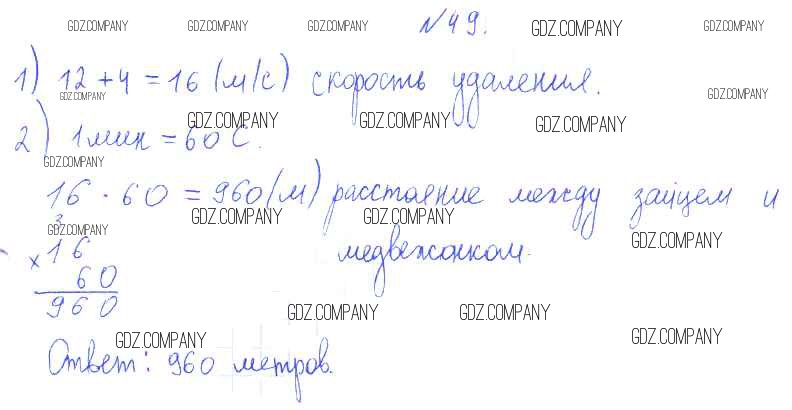 GDZ.COMPANY GDZ.COMPANY GDZ.COMPANY №49. GDZ.COMPANY GDZ.COMPANY
1) 12 + 4 = 16 (м/с) скорость удаления.
GDZ.COMPANY GDZ.COMPANY
GDZ.COMPANY GDZ.COMPANY GDZ.COMPANY
2) 1 мин = 60 с.
GDZ.COMPANY
16 · 60 = 960 (м) расстояние между зайцем и
GDZ.COMPANY GDZ.COMPANY
медвежонком.
GDZ.COMPANY GDZ.COMPANY
3
× 16
60
960
GDZ.COMPANY GDZ.COMPANY
GDZ.COMPANY GDZ.COMPANY
Ответ: 960 метров.